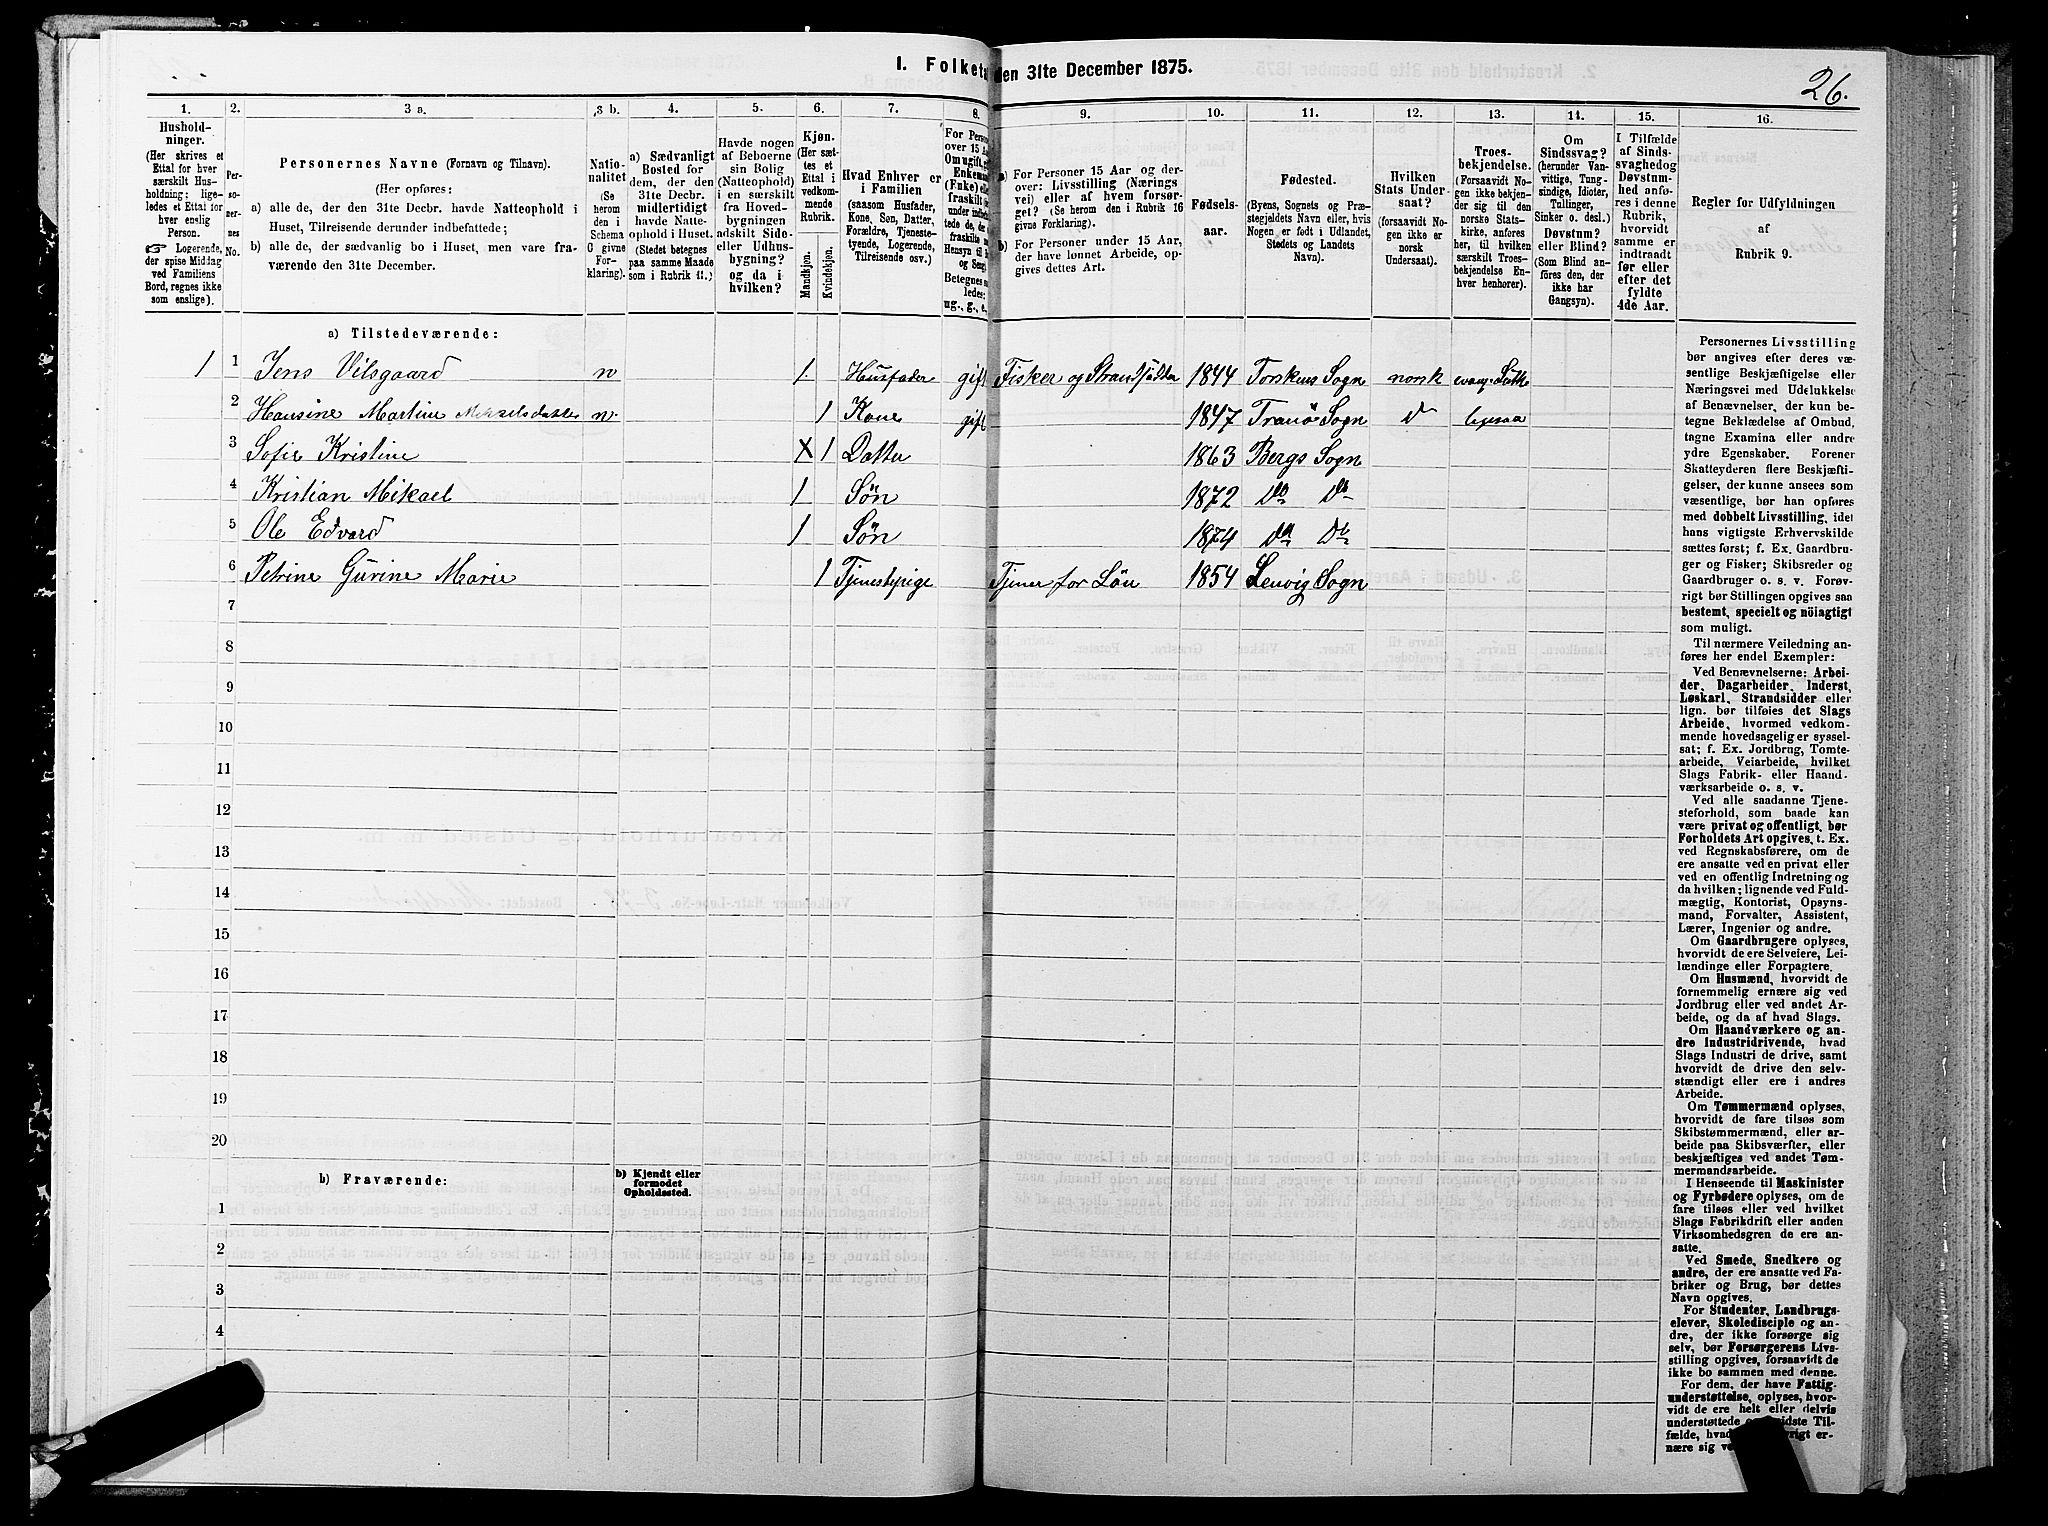 I. Folketa den 31te December 1875.
26.
1. 2. 3 a. 3 b. 4. 5. 6. 7. 8. 9. 10. 11. 12. 13. 14. 15. 16.
Hushold-
ninger.
(Her skrives et
Ettal for hver
særskilt Hus-
holdning; lige-
ledes et Ettal for
hver enslig
Person.
☞ Logerende,
der spise Middag
ved Familiens
Bord, regnes ikke
som enslige).
Per-
so-
ner-
nes
No.
Personernes Navne (Fornavn og Tilnavn).
(Her opføres:
a) alle de, der den 31te Decbr. havde Natteophold i
Huset, Tilreisende derunder indbefattede;
b) alle de, der sædvanlig bo i Huset, men vare fra-
værende den 31te December.
Natio-
nalitet
(Se
herom
den i
Schema
G givne
For-
klaring).
a) Sædvanligt
Bosted for
dem, der den
31te Decbr.
midlertidigt
havde Natte-
ophold i Huset.
(Stedet betegnes
paa samme Maade
som i Rubrik 11.)
Havde nogen
af Beboerne
sin Bolig
(Natteophold)
i en særskilt
fra Hoved-
bygningen
adskilt Side-
eller Udhus-
bygning?
og da i
hvilken?
Kjøn.
(Her sæt-
tes et
Ettal i
vedkom-
mende
Rubrik.
Mandkjøn.
Kvindekjøn.
Hvad Enhver er
i Familien
(saasom Husfader,
Kone, Søn, Datter,
Forældre, Tjeneste-
tyende, Logerende,
Tilreisende osv.)
For Person
over 15 Aa
Om ugift, g
Enkema
(Fuke) elle
fraskilt
ug., g., e.,
a) For Personer 15 Aar og der-
over: Livsstilling (Nærings
vei) eller af hvem forsør-
get? (Se herom den i Rubrik 16
givne Forklaring).
b) For Personer under 15 Aar,
der have lønnet Arbeide, op-
gives dettes Art.
Fødsels-
aar.
Fødested.
(Byens, Sognets og Præ-
stegjeldets Navn eller, hvis
Nogen er født i Udlandet,
Stedets og Landets
Navn).
Hvilken
Stats Under-
saat?
(forsaavidt No-
gen ikke er
norsk
Undersaat).
Troes-
bekjendelse.
(Forsaavidt No-
gen ikke bekjen-
der sig til den
norske Stats-
kirke, anføres
her, til hvilken
særskilt Troes-
bekjendelse En-
hver henhører).
Om
Sindssvag?
(herunder Van-
vittige, Tung-
sindige, Idioter,
Sinker o. desl.)
Døvstum?
eller Blind?
(Som Blind an-
føres den, der
ikke har
Gangsyn).
I Tilfælde
af Sinds-
svaghed og
Døvstum-
hed anfø-
res i denne
Rubrik,
hvorvidt
samme er
indtraadt
før eller
efter det
fyldte
4de Aar.
Regler for Udfyldningen
af
Rubrik 9.
a) Tilstedeværende:
1 1 Jens Vilsgaard n 1 Husfader gift Fisker og Strandsidder 1844 Torskens Sogn norsk evang. Luth
2 Hansine Martine Mikkelsdatter n. 1 Kone gift 1847 Tranö Sogn D ligesaa
3 Sofie Kristine X 1 Datter 1863 Bergs Sogn
4 Kristian Mikael 1 Søn 1872 Do Do
5 Ole Edvard 1 Søn 1874 Do Do
6 Petrine Gurine Marie 1 Tjenestepige Tjener for Løn 1854 Lenvig Sogn
7
8
9
10
11
12
13
14
15
16
17
18
19
20
b) Fraværende:
b) Kjendt eller
formodet
Opholdssted.
1
2
3
4
Personernes Livsstilling
bør angives efter deres væ-
sentlige Beskjæftigelse eller
Næringsvei med Udelukkelse
af Benævnelser, der kun be-
tegne Beklædelse af Ombud,
tagne Examina eller andre
ydre Egenskaber. Forener
Skatteyderen flere Beskjæfti-
gelser, der kunne ansees som
væsentlige, bør han opføres
med dobbelt Livsstilling, idet
hans vigtigste Erhvervskilde
sættes først; f. Ex. Gaardbru-
ger og Fisker; Skibsreder og
Gaardbruger o. s. v. Forøv-
rigt bør Stillingen opgives saa
bestemt, specielt og nöiagtigt
som muligt.
Til nærmere Veiledning an-
føres her endel Exempler:
Ved Benævnelserne: Arbei-
der, Dagarbeider, Inderst,
Løskarl, Strandsidder eller
lign. bør tilføies det Slags
Arbeide, hvormed vedkom-
mende hovedsagelig er syssel-
sat; f. Ex. Jordbrug, Tomte-
arbeide, Veiarbeide, hvilket
Slags Fabrik- eller Haand-
værksarbeide o. s. v.
Ved alle saadanne Tjene-
steforhold, som baade kan
være privat og offentligt, bør
Forholdets Art opgives, t. Ex.
ved Regnskabsførere, om de
ere ansatte ved en privat eller
ved en offentlig Indretning og
da hvilken; lignende ved Fuld-
mægtig, Kontorist, Opsyns-
mand, Forvalter, Assistent,
Lærer, Ingeniør og andre.
Om Gaardbrugere oplyses,
hvorvidt de ere Selveiere, Lei-
lændinge eller Forpagtere.
Om Husmænd, hvorvidt de
fornemmelig ernære sig ved
Jordbrug eller ved andet Ar-
beide, og da af hvad Slags.
Om Haandværkere og an-
dre Industridrivende, hvad
Slags Industri de drive, samt
hvorvidt de drive den selv-
stændigt eller ere i andres
Arbeide.
Om Tømmermænd oplyses,
hvorvidt de fare tilsøs som
Skibstømmermænd, eller ar-
beide paa Skibsværfter, eller
beskjæftiges ved andet Tøm-
mermandsarbeide.
I Henseende til Maskinister
og Fyrbødere oplyses, om de
fare tilsøs eller ved hvilket
Slags Fabrikdrift eller anden
Virksomhedsgren de ere an-
satte.
Ved Smede, Snedkere og
andre, der ere ansatte ved Fa-
briker og Brug, bør dettes
Navn opgives.
For Studenter, Landbrugs-
elever, Skoledisciple og an-
dre, der ikke forsørge sig
selv, bør Forsørgerens Livs-
stilling opgives, forsaavidt de
ikke bo sammen med denne.
For dem, der have Fattig-
understøttelse, oplyses, hvor-
vidt de ere helt eller delvis
understøttede